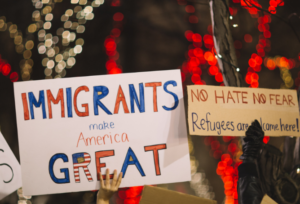 IMMIGRANTS
make
America
GREAT
NO HATE NO FEAR
Refugees are come here!